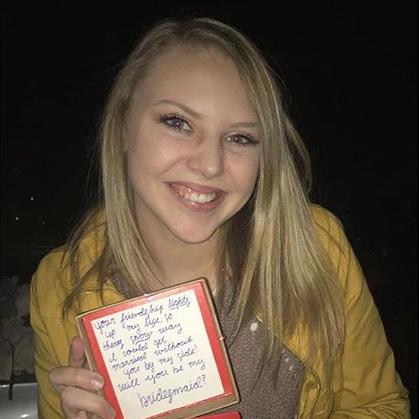 your friendship lights
up my life, so
theres sorry way
I could get
married without
you by my side!
will you be my
bridesmaid?